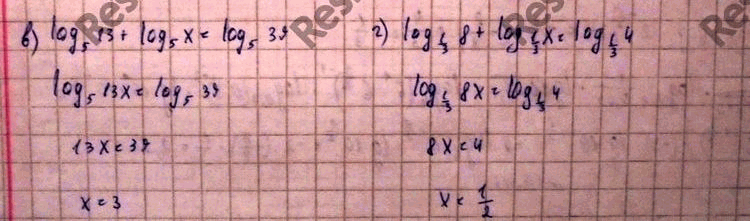 в) log₅ 13 + log₅ x = log₅ 39
log₅ 13x = log₅ 39
13x = 39
x = 3
г) log_{1/3} 8 + log_{1/3} x = log_{1/3} 4
log_{1/3} 8x = log_{1/3} 4
8x = 4
x = 1/2